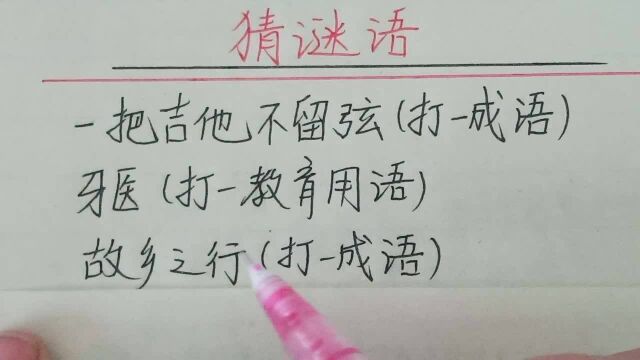 猜谜语
一把吉他不留弦(打一成语)
牙医(打一教育用语)
故乡之行(打一成语)